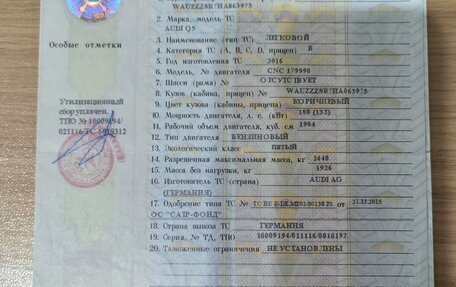 WAUZZZ8R7HA063975
2. Марка, модель ТС
AUDI Q5
3. Наименование (тип ТС) ЛЕГКОВОЙ
4. Категория ТС (A, B, C, D, прицеп) B
5. Год изготовления ТС 2016
6. Модель, № двигателя CNC 179998
7. Шасси (рама) № ОТСУТСТВУЕТ
8. Кузов (кабина, прицеп) № WAUZZZ8R7HA063975
9. Цвет кузова (кабины, прицепа) КОРИЧНЕВЫЙ
10. Мощность двигателя, л. с. (кВт) 180 (132)
11. Рабочий объем двигателя, куб. см 1984
12. Тип двигателя БЕНЗИНОВЫЙ
13. Экологический класс ПЯТЫЙ
14. Разрешенная максимальная масса, кг 2440
15. Масса без нагрузки, кг 1926
16. Изготовитель ТС (страна) AUDI AG
(ГЕРМАНИЯ)
17. Одобрение типа ТС № ТС RU E-DE.MT02.00138.P2 от 21.12.2015
ОС "САТР-ФОНД"
18. Страна вывоза ТС ГЕРМАНИЯ
19. Серия, № ТД, ТПО 10009194/011116/0010192
20. Таможенные ограничения НЕ УСТАНОВЛЕНЫ
Особые отметки
Утилизационный
сбор уплачен.
ТПО № 10009194/
021116/ТС-6018312